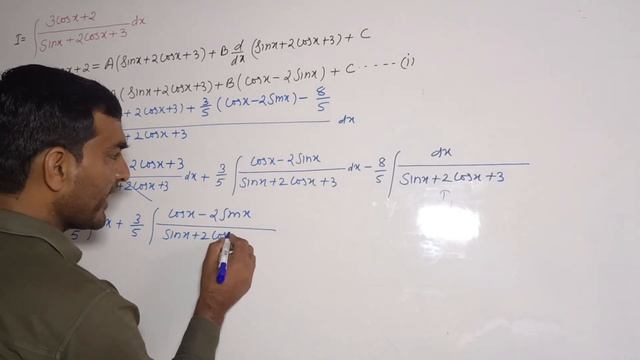 I = ∫ 3cosx+2 / Sinx+2cosx+3 dx
x+2 = A(Sinx+2cosx+3) + B d/dx (Sinx+2cosx+3) + C
(Sinx+2cosx+3) + B(cosx-2Sinx) + C ----- (i)
+2cosx+3) + 3/5 (cosx-2Sinx) - 8/5
+2cosx+3 dx
2cosx+3 dx + 3/5 ∫ cosx-2Sinx / Sinx+2cosx+3 dx - 8/5 ∫ dx / Sinx+2cosx+3
5 ∫ x + 3/5 ∫ cosx-2Sinx / Sinx+2cos